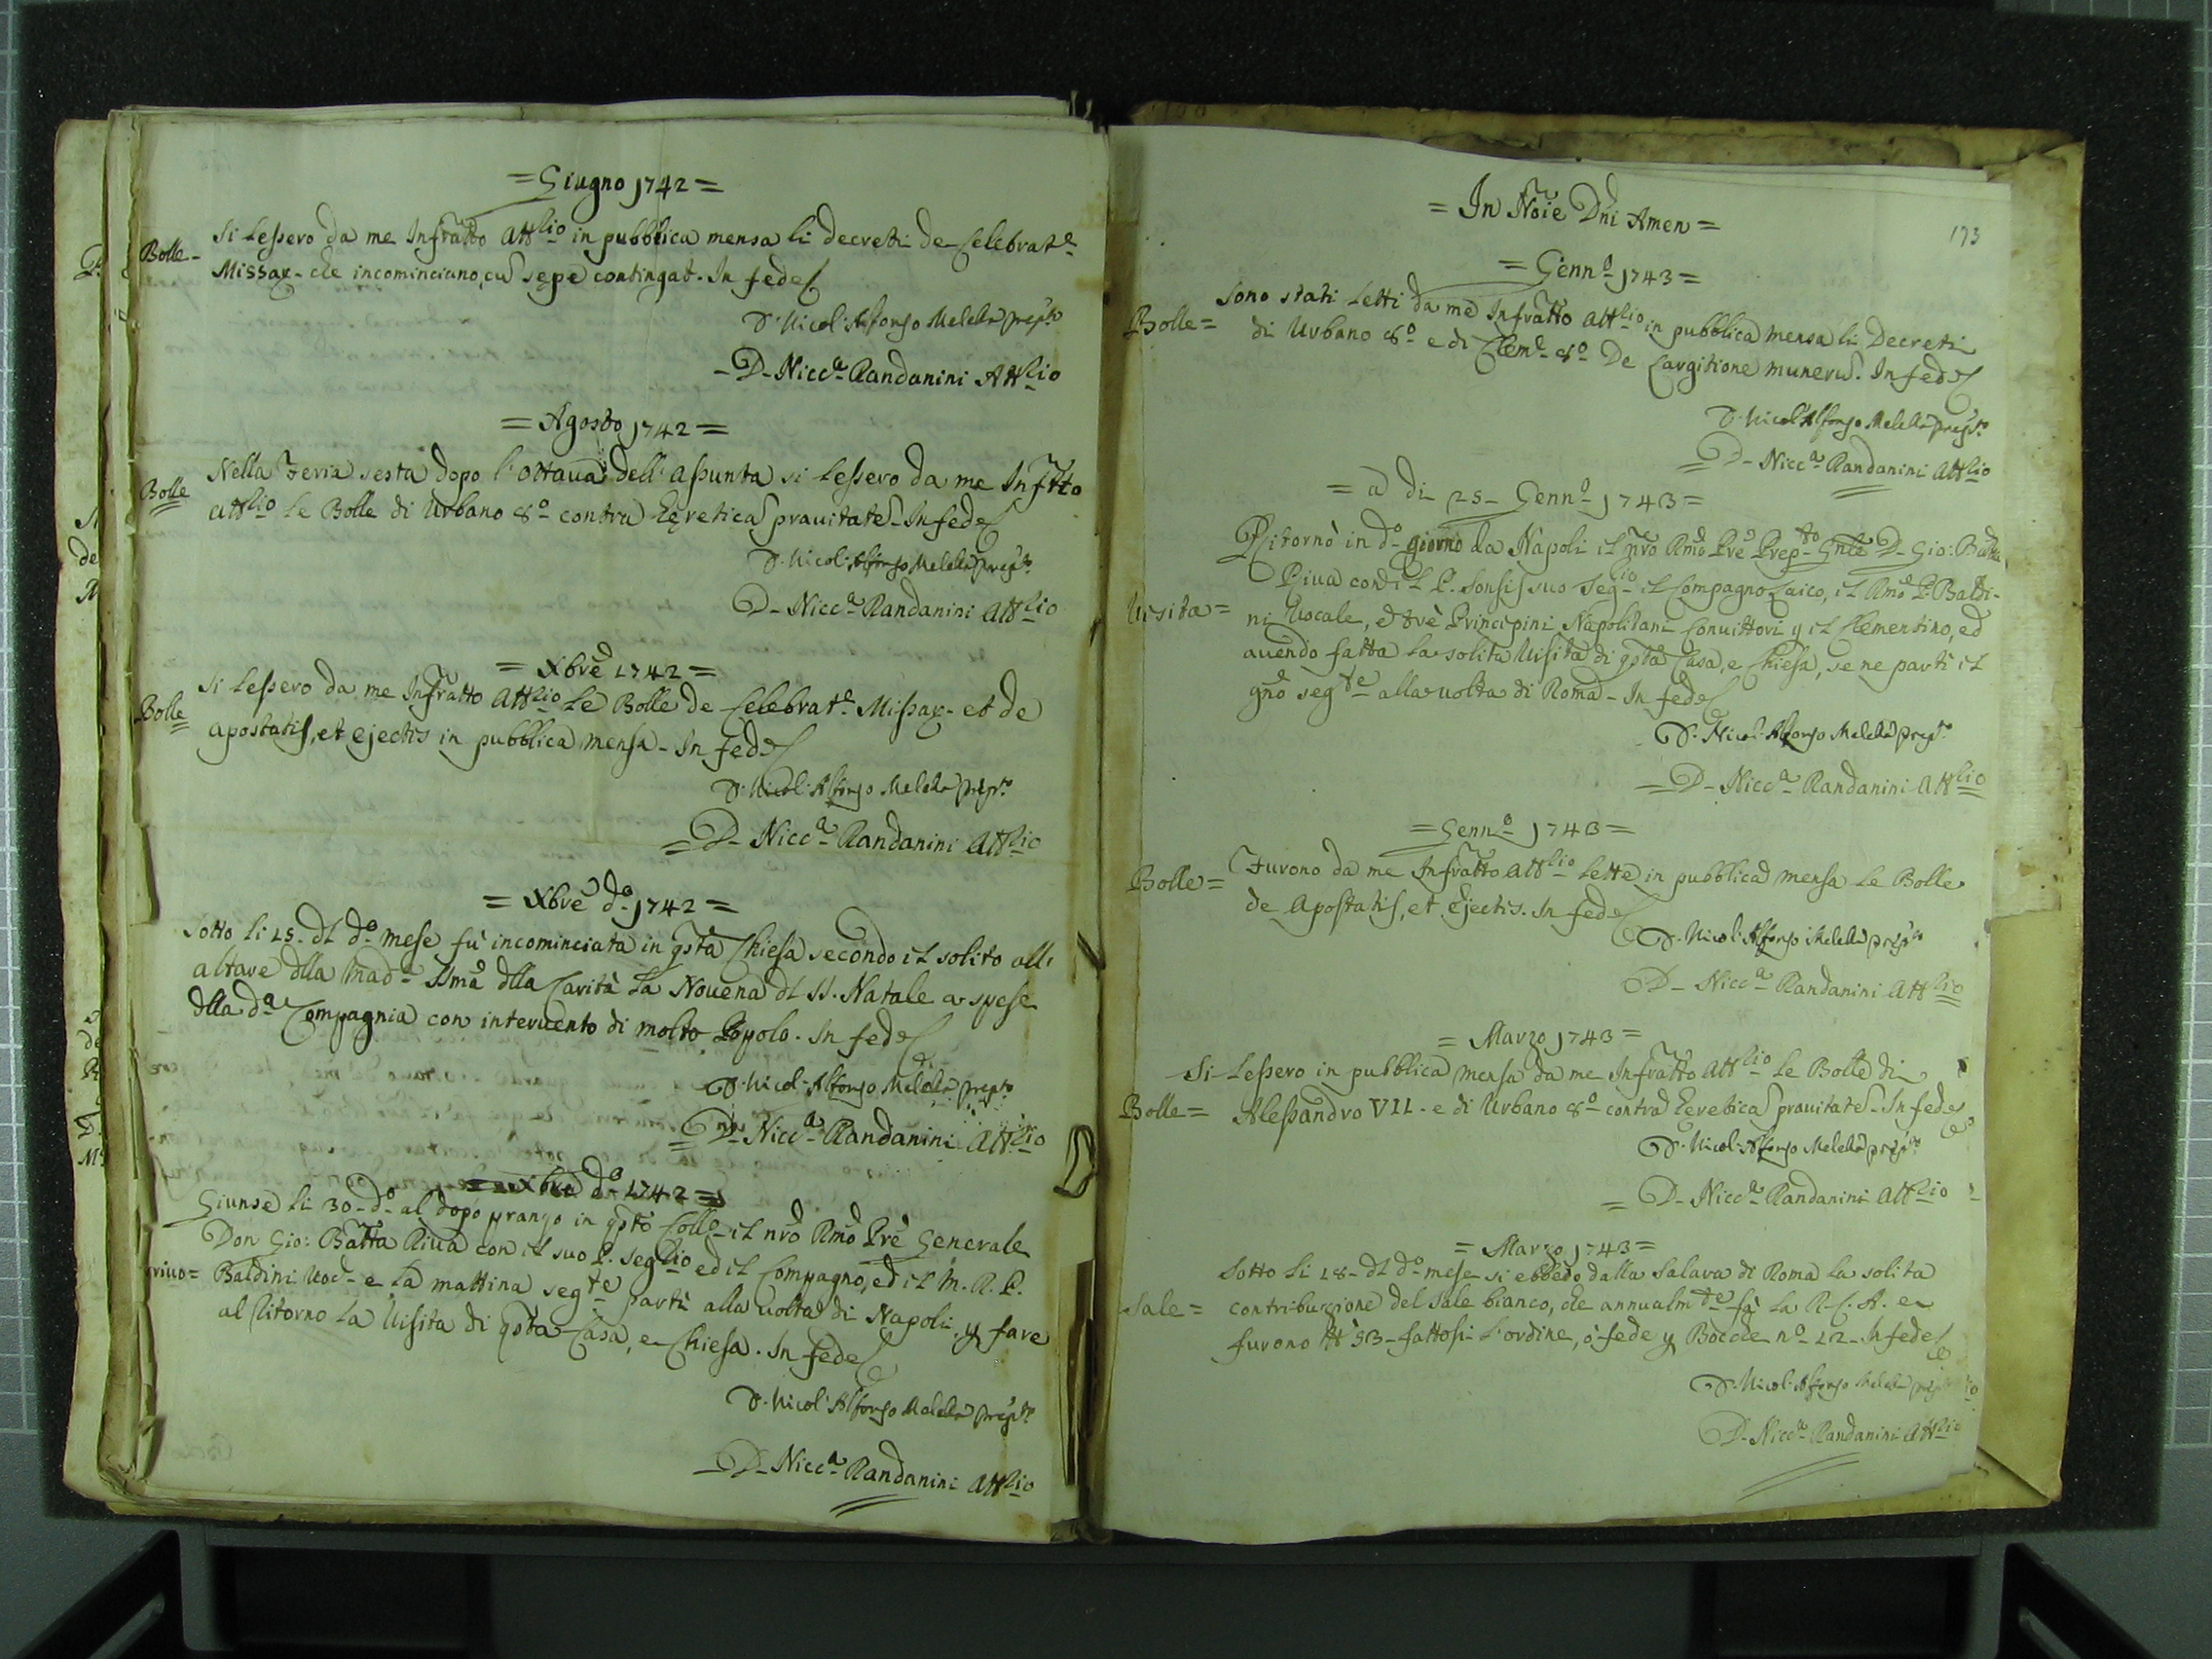 = Giugno 1742 =
Bolle - Si lessero da me Infratto Attlio in pubblica mensa li decreti de Celebrate
Missar- che incominciano, cu sepe contingat. In fede
D. Nicol: Alfonso Melella prepto
- D- Nicca Randanini Attlio
= Agosto 1742 =
Bolle Nella Feria sesta dopo l'ottava dell'Assunta si lessero da me Infrtto
Attlio le Bolle di Urbano 8o contra heretica pravitate - In fede
D. Nicol: Alfonso Melella prepto
D- Nicca Randanini Attlio
= Xbre 1742 =
Bolle Si lessero da me Infratto Attlio le Bolle de Celebrate Missar- et de
apostatis, et ejectis in pubblica mensa - In fede
D. Nicol: Alfonso Melella prepto
= D- Nicca Randanini Attlio
= Xbre do 1742 =
Sotto li 15- dl do mese fù incominciata in qsta Chiesa secondo il solito all'
altare dlla Mada SSma dlla Carità la Novena dl SS. Natale a spese
dlla da Compagnia con intervento di molto Popolo. In fede
D. Nicol: Alfonso Melella prepto
= D- Nicca Randanini Attlio
= Xbre do 1742 =
Giunse li 30- do al dopo pranzo in qsto Collo il nro Rmo Pre Generale
Don Gio: Batta Riva con il suo P. Seglio ed il Compagno, ed il M. R. P.
rivo = Baldini Voc- e la mattina segte partì alla volta di Napoli, p fare
al Ritorno la Visita di qsta Casa, e Chiesa. In fede
D. Nicol: Alfonso Melella prepto
- D- Nicca Randanini Attlio
173
= In Noie Dni Amen =
= Genno 1743 =
Bolle = Sono stati letti da me Infratto Attlio in pubblica mensa li Decreti
di Urbano 8o e di Cleme 8o De Largitione muneru. In fede
D. Nicol: Alfonso Melella prepto
= D- Nicca Randanini Attlio
= a di 25- Genno 1743 =
Ritornò in do giorno da Napoli il nro Rmo Pre Prepto Gnle D- Gio: Batta
Riva con il P. Sonsis suo Seglio il Compagno Laico, il Rmo P. Baldi-
Visita = ni Vocale, e trè Principini Napolitani Convittori p il Clementino, ed
avendo fatta la solita Visita di qsta Casa, e Chiesa, se ne partì il
gno segte alla volta di Roma - In fede
D. Nicol: Alfonso Melella prepto
= D- Nicca Randanini Attlio
= Genno 1743 =
Bolle = Furono da me Infratto Attlio lette in pubblica mensa le Bolle
de Apostatis, et ejectis. In fede
D. Nicol: Alfonso Melella prepto
D- Nicca Randanini Attlio
= Marzo 1743 =
Si lessero in pubblica mensa da me Infratto Attlio le Bolle di
Bolle = Alessandro VII- e di Urbano 8o contra heretica pravitate - In fede
D. Nicol: Alfonso Melella prepto
= D- Nicca Randanini Attlio
= Marzo 1743 =
Sotto li 18- dl do mese si ebbero dalla Salara di Roma la solita
Sale = contribuzione del sale bianco, che annualmte fà la R. C. A. e
furono 53- fattosi l'ordine, ò fede p Bocche no 12- In fede
D. Nicol: Alfonso Melella prepto
D- Nicca Randanini Attlio